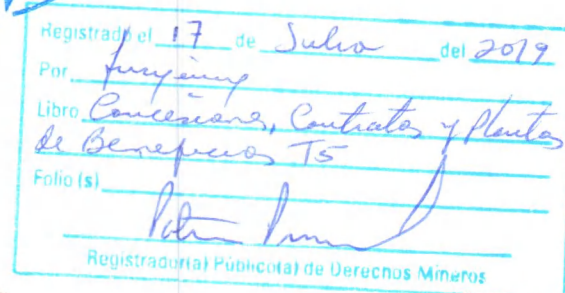 Registrado el 17 de Julio del 2019
Por
Libro Concesiones, Contratos y Plantas
de Beneficios T5
Folio (s)
Registrador(a) Público(a) de Derechos Mineros